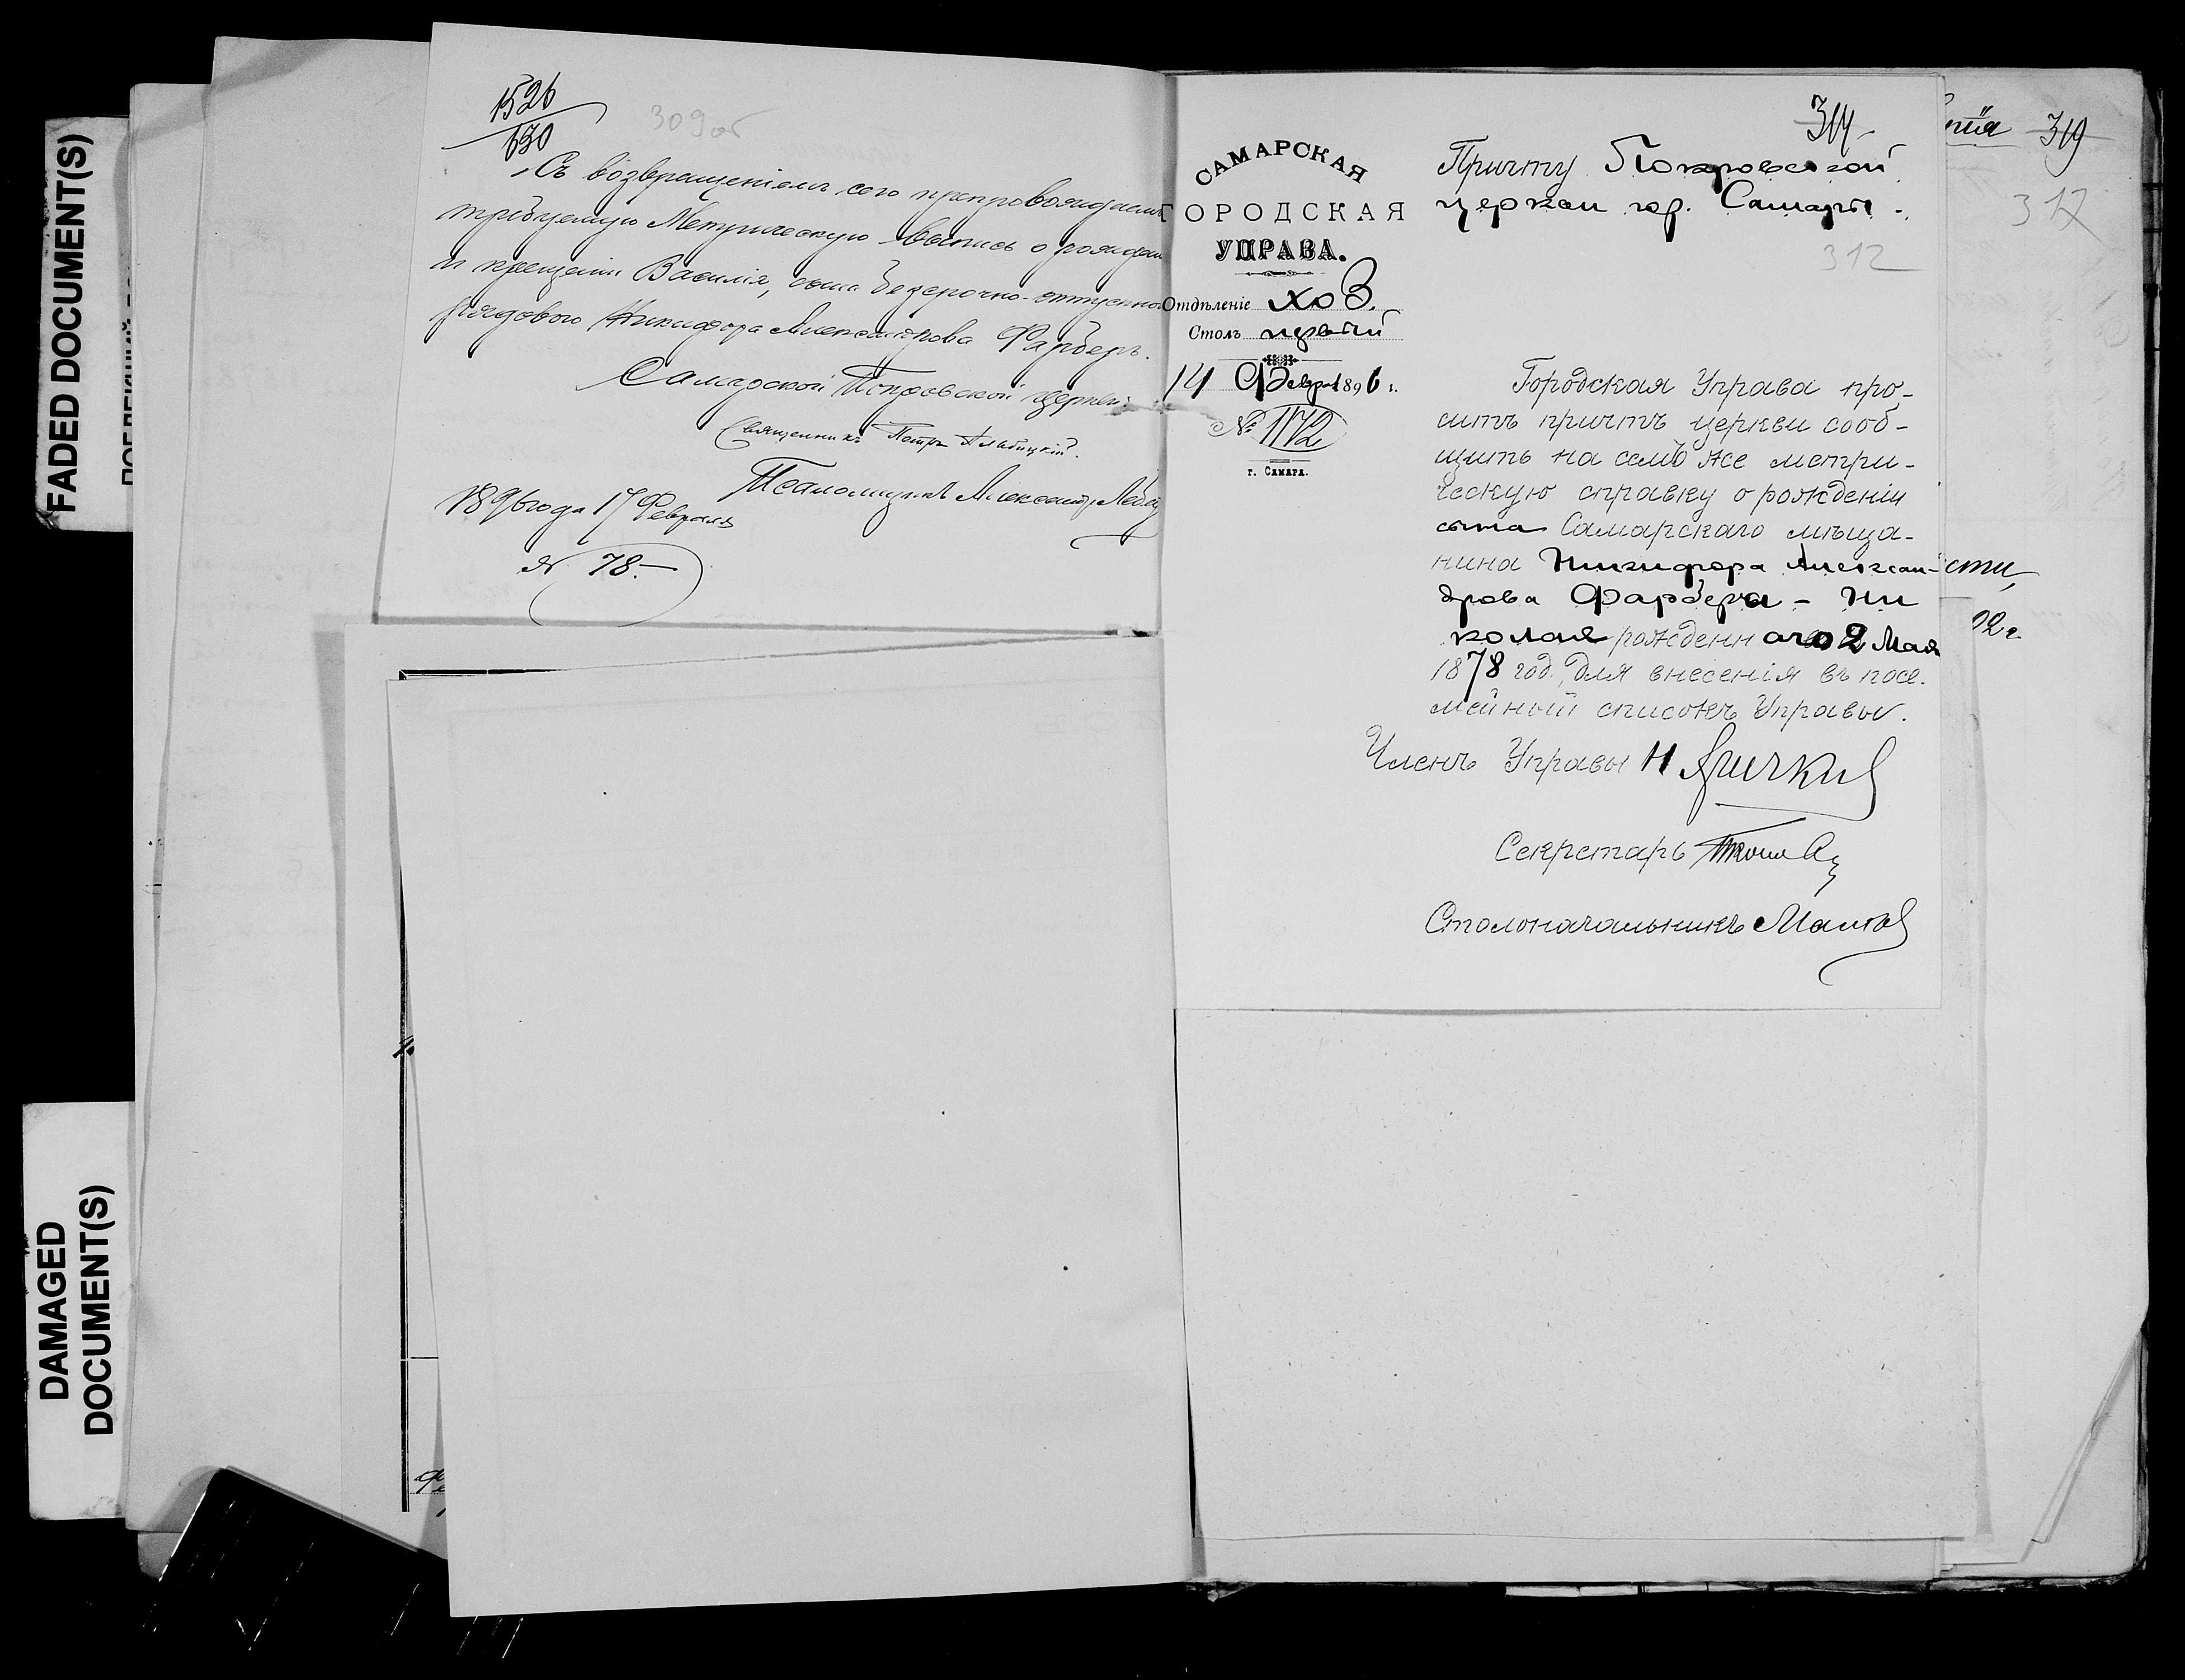 FADED DOCUMENT(S)
DAMAGED
DOCUMENT(S)
1526
630
309 об
Съ возвращеніемъ сего препровождаемъ
требуемую Метрическую выпись о рожденіи
и крещеніи Василія, сына безсрочно-отпускнаго
рядового Никифора Александрова Фарберъ.
Самарской Покровской церкви:
Священникъ Петръ
Псаломщикъ Александръ
1896 года 17 Февраля
№ 78.—
САМАРСКАЯ
ГОРОДСКАЯ
УПРАВА.
Отдѣленіе хоз.
Столъ первый
14 Февр. 1896 г.
№ 1172
г. САМАРА.
314
Причту Покровской
церкви гор. Самары.
312
Городская Управа про-
ситъ причтъ церкви сооб-
щить на семъ же метри-
ческую справку о рожденіи
сына Самарскаго мѣща-
нина Никифора Алексан-
дрова Фарбера – Ни
колая рожденнаго 2 Мая
1878 год. для внесенія въ посе-
мейный списокъ Управы.
Членъ Управы Н
Секретарь
Столоначальникъ
319
317
сти,
92 г.